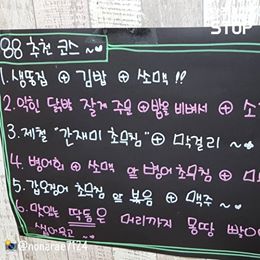 STOP
88 추천 코스 ~♡
1. 생뚱집 ⊕ 김밥 ⊕ 쏘맥 !!
2. 닭밥 잘게 주물 ⊕ 밥을 비벼서 ⊕ 소
3. 제철 "간재미 초무침" ⊕ 막걸리 ~
4. 병어회 ⊕ 쏘맥 앞 병어초무침 ⊕
5. 갑오징어 초무침 앞 볶음 ⊕ 맥주 ~
6. 맛있는 딱돔은 머리까지 몽땅
@nonarae1124